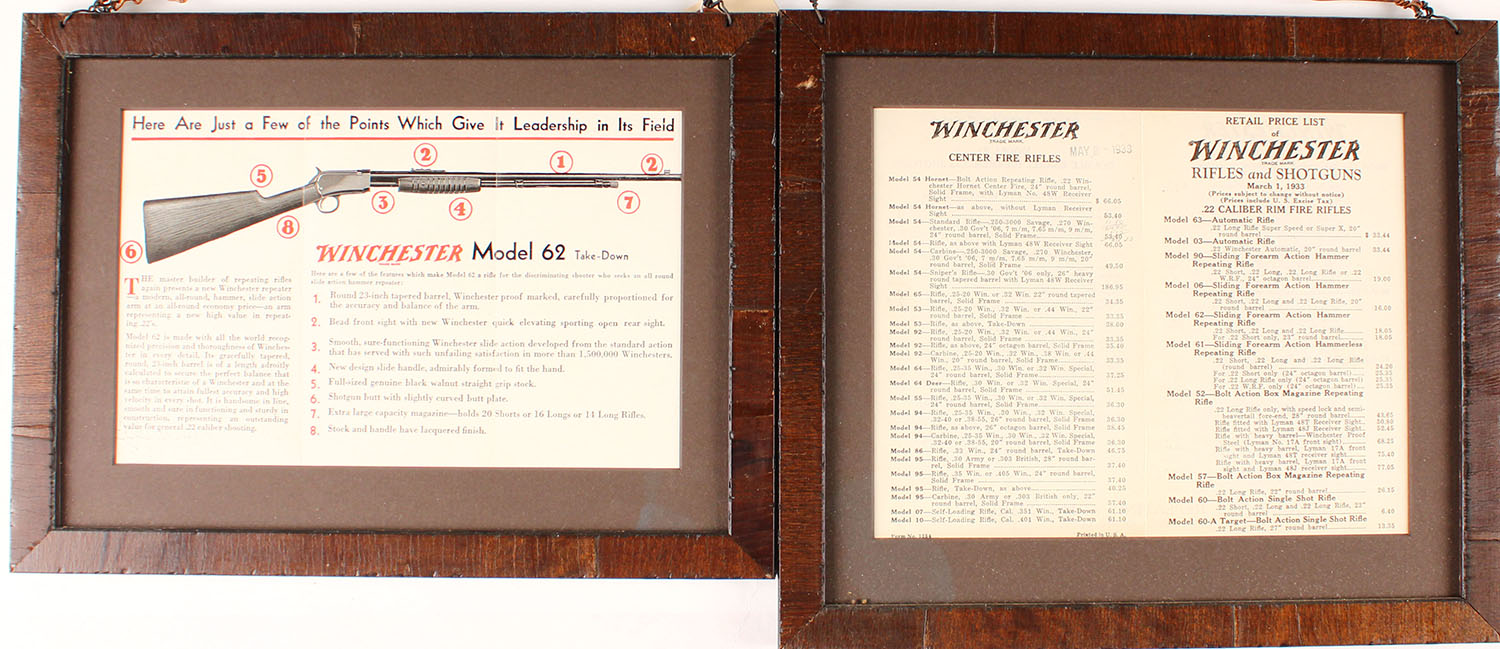 Here Are Just a Few of the Points Which Give It Leadership in Its Field
2
1
2
5
3
4
7
8
6
WINCHESTER Model 62 Take-Down
TRADE MARK
THE master builder of repeating rifles
again presents a new Winchester repeater
—a modern, all-round, hammer, slide action
arm at an all-round economy price—an arm
representing a new high value in repeat-
ing .22's.
Model 62 is made with all the world recog-
nized precision and thoroughness of Winches-
ter in every detail. Its gracefully tapered,
round, 23-inch barrel is of a length adroitly
calculated to secure the perfect balance that
is so characteristic of a Winchester and at the
same time to attain fullest accuracy and high
velocity in every shot. It is handsome in line,
smooth and sure in functioning and sturdy in
construction, representing an outstanding
value for general .22 caliber shooting.
Here are a few of the features which make Model 62 a rifle for the discriminating shooter who seeks an all round
slide action hammer repeater:
1. Round 23-inch tapered barrel, Winchester proof marked, carefully proportioned for
the accuracy and balance of the arm.
2. Bead front sight with new Winchester quick elevating sporting open rear sight.
3. Smooth, sure-functioning Winchester slide action developed from the standard action
that has served with such unfailing satisfaction in more than 1,500,000 Winchesters.
4. New design slide handle, admirably formed to fit the hand.
5. Full-sized genuine black walnut straight grip stock.
6. Shotgun butt with slightly curved butt plate.
7. Extra large capacity magazine—holds 20 Shorts or 16 Longs or 14 Long Rifles.
8. Stock and handle have lacquered finish.
WINCHESTER
TRADE MARK
MAY 1933
CENTER FIRE RIFLES
Model 54 Hornet—Bolt Action Repeating Rifle, .22 Win-
chester Hornet Center Fire, 24" round barrel,
Solid Frame, with Lyman No. 48W Receiver
Sight $ 66.05
Model 54 Hornet—as above, without Lyman Receiver
Sight 53.40
Model 54—Standard Rifle—.250-3000 Savage, .270 Win-
chester, .30 Gov't '06, 7 m/m, 7.65 m/m, 9 m/m,
24" round barrel, Solid Frame 53.40
Model 54—Rifle, as above with Lyman 48W Receiver Sight 66.05
Model 54—Carbine—.250-3000 Savage, .270 Winchester,
.30 Gov't '06, 7 m/m, 7.65 m/m, 9 m/m, 20"
round barrel, Solid Frame 49.50
Model 54—Sniper's Rifle—.30 Gov't '06 only, 26" heavy
round tapered barrel with Lyman 48W Receiver
Sight 186.95
Model 65—Rifle, .25-20 Win. or .32 Win. 22" round tapered
barrel, Solid Frame 34.35
Model 53—Rifle, .25-20 Win., .32 Win. or .44 Win., 22"
round barrel, Solid Frame 33.35
Model 53—Rifle, as above, Take-Down 38.60
Model 92—Rifle, .25-20 Win., .32 Win. or .44 Win., 24"
round barrel, Solid Frame 33.35
Model 92—Rifle, as above, 24" octagon barrel, Solid Frame 35.40
Model 92—Carbine, .25-20 Win., .32 Win., .38 Win. or .44
Win., 20" round barrel, Solid Frame 33.35
Model 64—Rifle, .25-35 Win., .30 Win. or .32 Win. Special,
24" round barrel, Solid Frame 37.25
Model 64 Deer—Rifle, .30 Win. or .32 Win. Special, 24"
round barrel, Solid Frame 51.45
Model 55—Rifle, .25-35 Win., .30 Win. or .32 Win. Special,
24" round barrel, Solid Frame 36.30
Model 94—Rifle, .25-35 Win., .30 Win., .32 Win. Special,
.32-40 or .38-55, 26" round barrel, Solid Frame 36.30
Model 94—Rifle, as above, 26" octagon barrel, Solid Frame 38.45
Model 94—Carbine, .25-35 Win., .30 Win., .32 Win. Special,
.32-40 or .38-55, 20" round barrel, Solid Frame 36.30
Model 86—Rifle, .33 Win., 24" round barrel, Take-Down 46.75
Model 95—Rifle, .30 Army or .303 British, 28" round bar-
rel, Solid Frame 37.40
Model 95—Rifle, .35 Win. or .405 Win., 24" round barrel,
Solid Frame 37.40
Model 95—Rifle, Take-Down, as above 40.25
Model 95—Carbine, .30 Army or .303 British only, 22"
round barrel, Solid Frame 37.40
Model 07—Self-Loading Rifle, Cal. .351 Win., Take-Down 61.10
Model 10—Self-Loading Rifle, Cal. .401 Win., Take-Down 61.10
Form No. 1254 Printed in U. S. A.
RETAIL PRICE LIST
of
WINCHESTER
TRADE MARK
RIFLES and SHOTGUNS
March 1, 1933
(Prices subject to change without notice)
(Prices include U. S. Excise Tax)
.22 CALIBER RIM FIRE RIFLES
Model 63—Automatic Rifle
.22 Long Rifle Super Speed or Super X, 20"
round barrel $ 33.44
Model 03—Automatic Rifle
.22 Winchester Automatic, 20" round barrel 33.44
Model 90—Sliding Forearm Action Hammer
Repeating Rifle
.22 Short, .22 Long, .22 Long Rifle or .22
W.R.F., 24" octagon barrel 19.00
Model 06—Sliding Forearm Action Hammer
Repeating Rifle
.22 Short, .22 Long and .22 Long Rifle, 20"
round barrel 16.00
Model 62—Sliding Forearm Action Hammer
Repeating Rifle
.22 Short, .22 Long and .22 Long Rifle 18.05
For .22 Short only, 23" round barrel 18.05
Model 61—Sliding Forearm Action Hammerless
Repeating Rifle
.22 Short, .22 Long and .22 Long Rifle
(round barrel) 24.26
For .22 Short only (24" octagon barrel) 25.35
For .22 Long Rifle only (24" octagon barrel) 25.35
For .22 W.R.F. only (24" octagon barrel) 25.35
Model 52—Bolt Action Box Magazine Repeating
Rifle
.22 Long Rifle only, with speed lock and semi-
beavertail fore-end, 28" round barrel 43.65
Rifle fitted with Lyman 48T Receiver Sight 50.80
Rifle fitted with Lyman 48J Receiver Sight 52.45
Rifle with heavy barrel—Winchester Proof
Steel (Lyman No. 17A front sight) 68.25
Rifle with heavy barrel, Lyman 17A front
sight and Lyman 48T receiver sight 75.40
Rifle with heavy barrel, Lyman 17A front
sight and Lyman 48J receiver sight 77.05
Model 57—Bolt Action Box Magazine Repeating
Rifle
.22 Long Rifle, 22" round barrel 26.35
Model 60—Bolt Action Single Shot Rifle
.22 Short, .22 Long and .22 Long Rifle, 23"
round barrel 6.40
Model 60-A Target—Bolt Action Single Shot Rifle
.22 Long Rifle, 27" round barrel 13.35